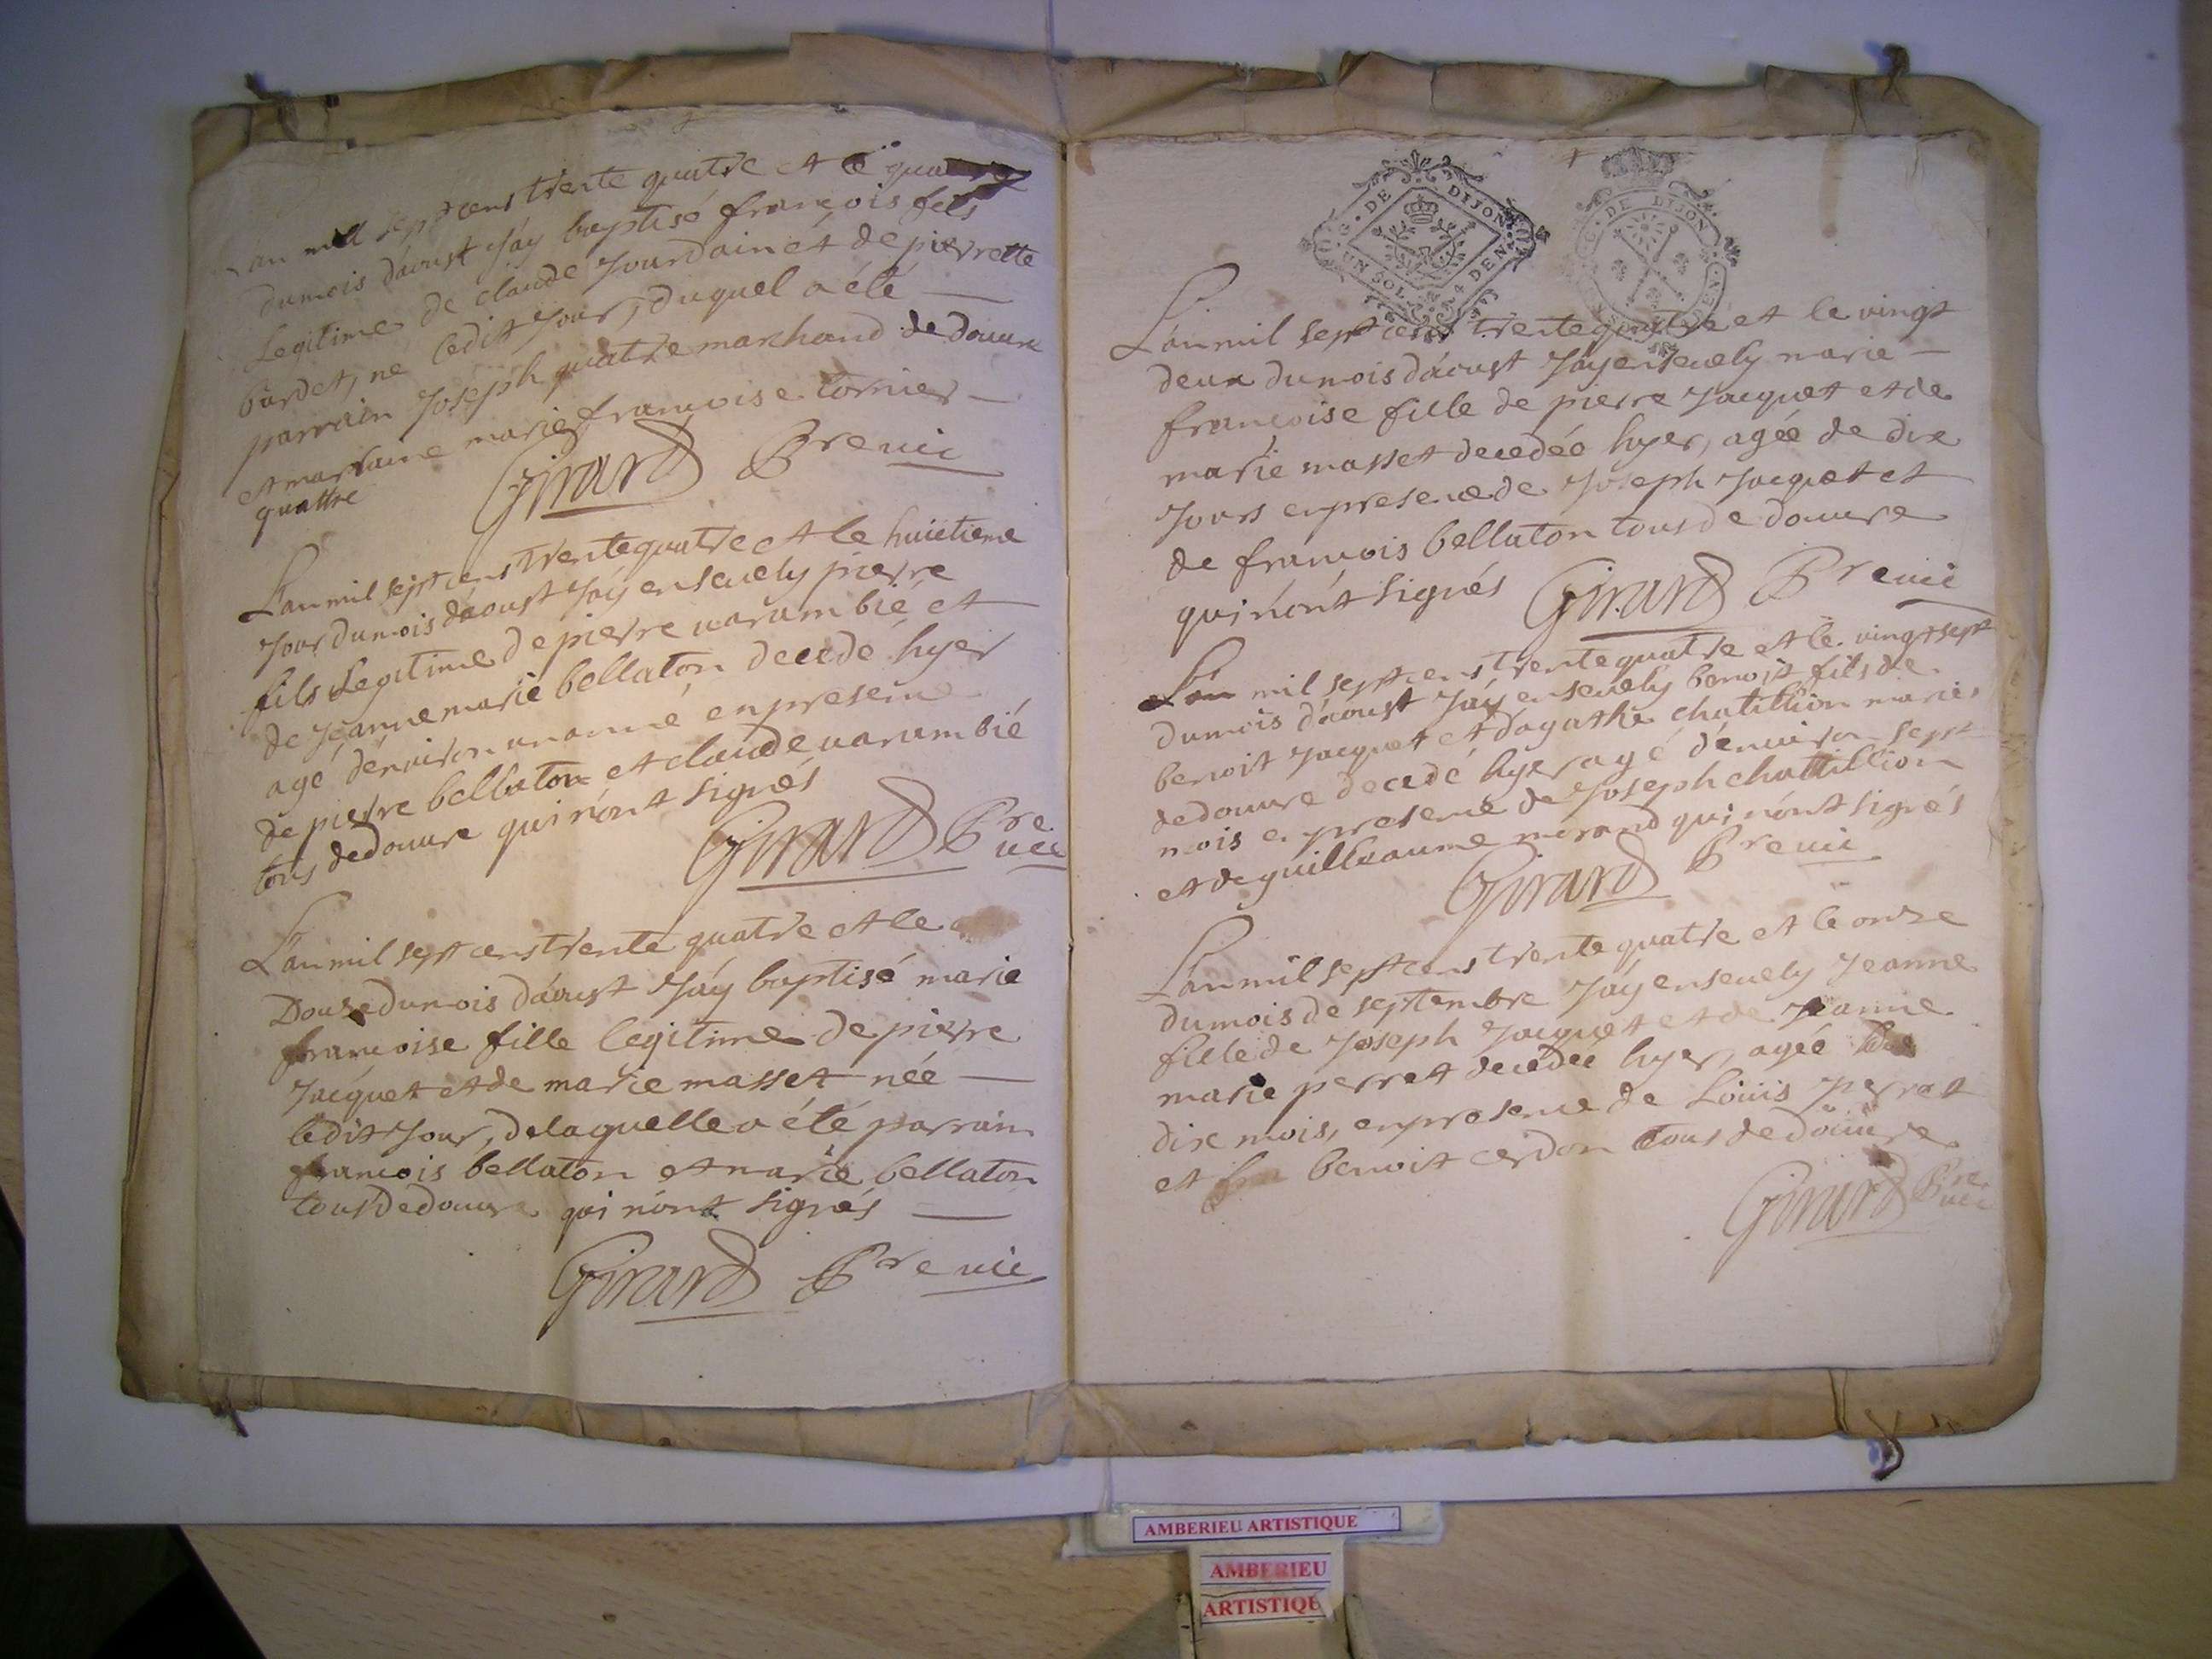 L'an mil sept cens trente quatre et le
du mois d'aoust J'ay baptisé françois fils
Legitime de claude Jourdain et de pierrette
bardet, ne ledit Jour, duquel a été
parrain Joseph quatre marchand de douure
et marraine marie françoise tornier
quattre
Girard Bre vic
L'an mil sept cens trente quatre et le huictieme
Jour du mois d'aoust J'ay ensevely pierre
fils Legitime de pierre varambié et
de Jeanne marie bellaton decedé hyer
agé d'énviron un anné en presence
de pierre bellaton et claude varambié
tous de douure qui n'ont signés
Girard Bre vic
L'an mil sept cens trente quatre et le
Douze du mois d'aoust J'ay baptisé marie
francoise fille legitime de pierre
Jacquet et de marie masset née
ledit Jour, de laquelle a été parrain
francois bellaton et marie bellaton
tous de douure qui n'ont signés
Girard Bre vic
G. DE DIJON
UN SOL 4 DEN.
G. DE DIJON
DEN.
L'an mil sept cens trente quatre et le vingt
deux du mois d'aoust J'ay ensevely marie
francoise fille de pierre Jacquet et de
marie masset decedée hyer, agée de dix
Jours en presence de Joseph Jacquet et
de francois bellaton tous de douure
qui n'ont signés Girard Bre vic
L'an mil sept cens trente quatre et le vingt sept
du mois d'aoust J'ay ensevely benoit fils de
benoit Jacquet et d'agathe chatillion mariés
de douure decedé hyer agé d'enuiron sept
mois en presence de Joseph chattillion
et de guilleaume morand qui n'ont signés
Girard Bre vic
L'an mil sept cens trente quatre et le onze
du mois de septembre J'ay ensevely Jeanne
fille de Joseph Jacquet et de Jeanne
marie perret decedée hyer, agée de
dix mois, en presence de Loüis perret
et benoit cerdon tous de douure
Girard Bre vic
AMBERIEU ARTISTIQUE
AMBERIEU
ARTISTIQUE